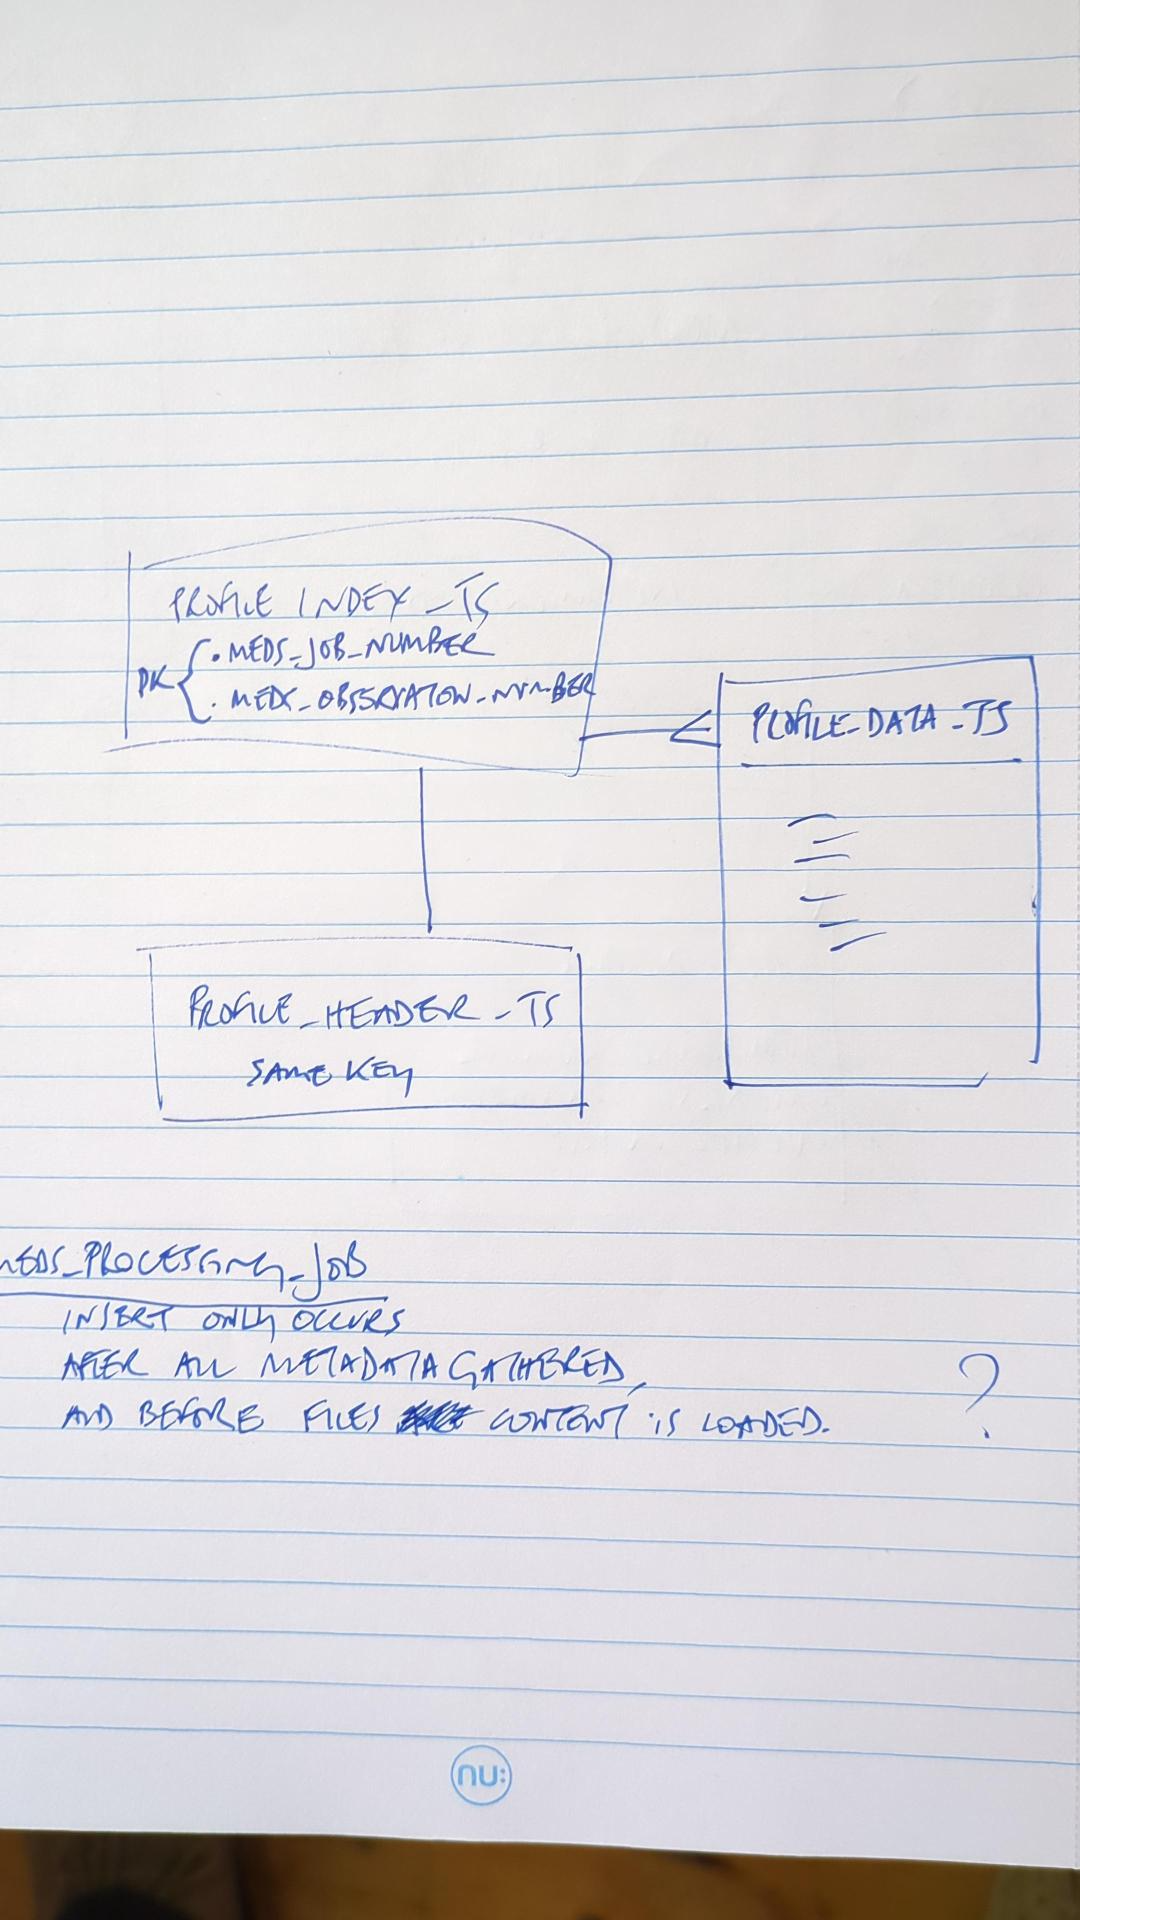 PROFILE INDEX_TS
PK { . MEDS_JOB_NUMBER
. MEDS_OBSERVATION_NUMBER
PROFILE_DATA_TS
PROFILE_HEADER_TS
SAME KEY
MEDS_PROCESSING_JOB
INSERT ONLY OCCURS
AFTER ALL METADATA GATHERED,
AND BEFORE FILES CONTENT IS LOADED. ?
nu: